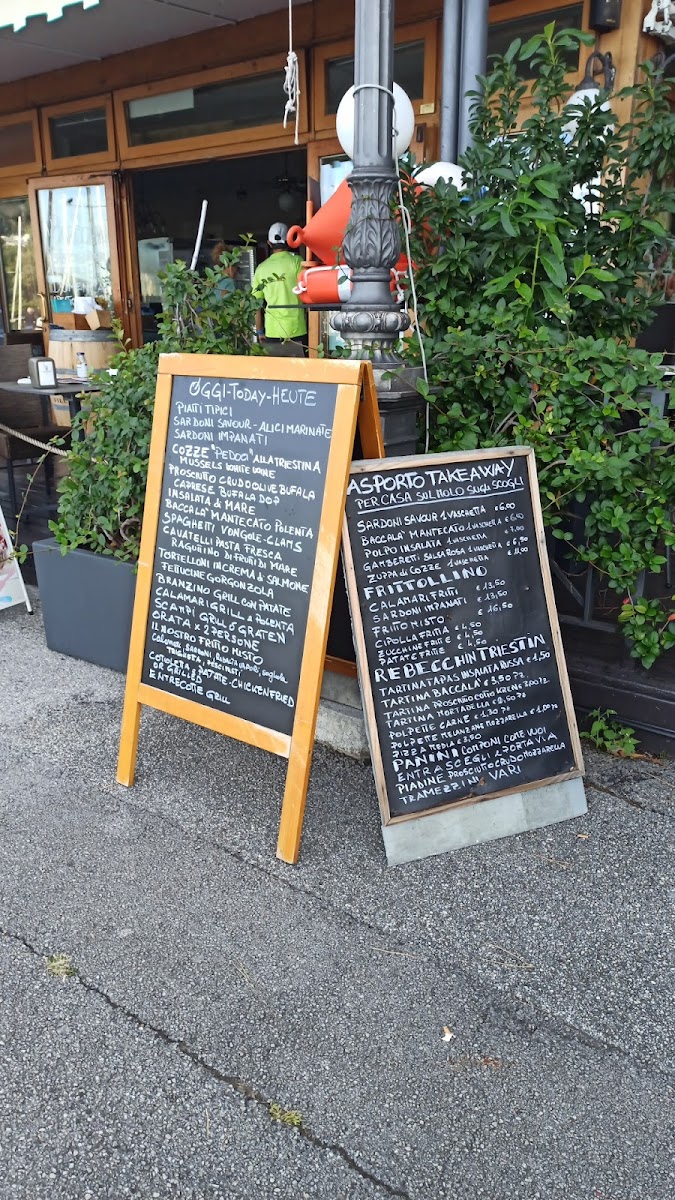 OGGI-TODAY-HEUTE
PIATTI TIPICI
SARDONI SAVOUR-ALICI MARINATE
SARDONI IMPANATI
COZZE "PEDOCI" ALLA TRIESTINA
MUSSELS WHITE WINE
PROSCIUTTO CRUDO OLIVE BUFALA
CAPRESE BUFALA DOP
INSALATA di MARE
BACCALÀ MANTECATO POLENTA
SPAGHETTI VONGOLE-CLAMS
CAVATELLI PASTA FRESCA
RAGUTINO DI FRUTTI DI MARE
TORTELLONI IN CREMA di SALMONE
FETTUCINE GORGONZOLA
BRANZINO GRILL CON PATATE
CALAMARI GRILL & POLENTA
SCAMPI GRILL O GRATEN
ORATA X 2 PERSONE
IL NOSTRO FRITTO MISTO
OR GRILLED
COTOLETTA, PATATE-CHICKEN FRIED
ENTRECOTTE GRILL
ASPORTO TAKEAWAY
PER CASA SUL MOLO SUGLI SCOGLI
SARDONI SAVOUR 1 VASCHETTA €6,00
BACCALA' MANTECATO 1 VASCHETTA €6,00
POLPO INSALATA 1 VASCHETTA €7,00
GAMBERETTI SALSA ROSA 1 VASCHETTA €6,50
ZUPPA di COZZE 1 VASCHETTA € 11,00
FRITTOLLINO
CALAMARI FRITTI € 13,50
SARDONI IMPANATI € 13,50
FRITTO MISTO € 16,50
CIPOLLA FRITTA € 4,50
ZUCCHINE FRITTE € 4,50
PATATE FRITTE € 4,50
REBECCHIN TRIESTIN
TARTINA TAPAS INSALATA RUSSA €1,50
TARTINA BACCALA' €3,50 PZ
TARTINA PROSCIUTTO COTTO KREN
TARTINA MORTADELLA €2,50 PZ
POLPETTE CARNE €1,30 PZ
POLPETTE MELANZANE MOZZARELLA €1,00 PZ
PIZZA MEDIA €3,50
PANINI COMPONI COME VUOI
ENTRA SCEGLI & PORTA VIA
PIADINE PROSCIUTTO CRUDO MOZZARELLA
TRAMEZZINI VARI